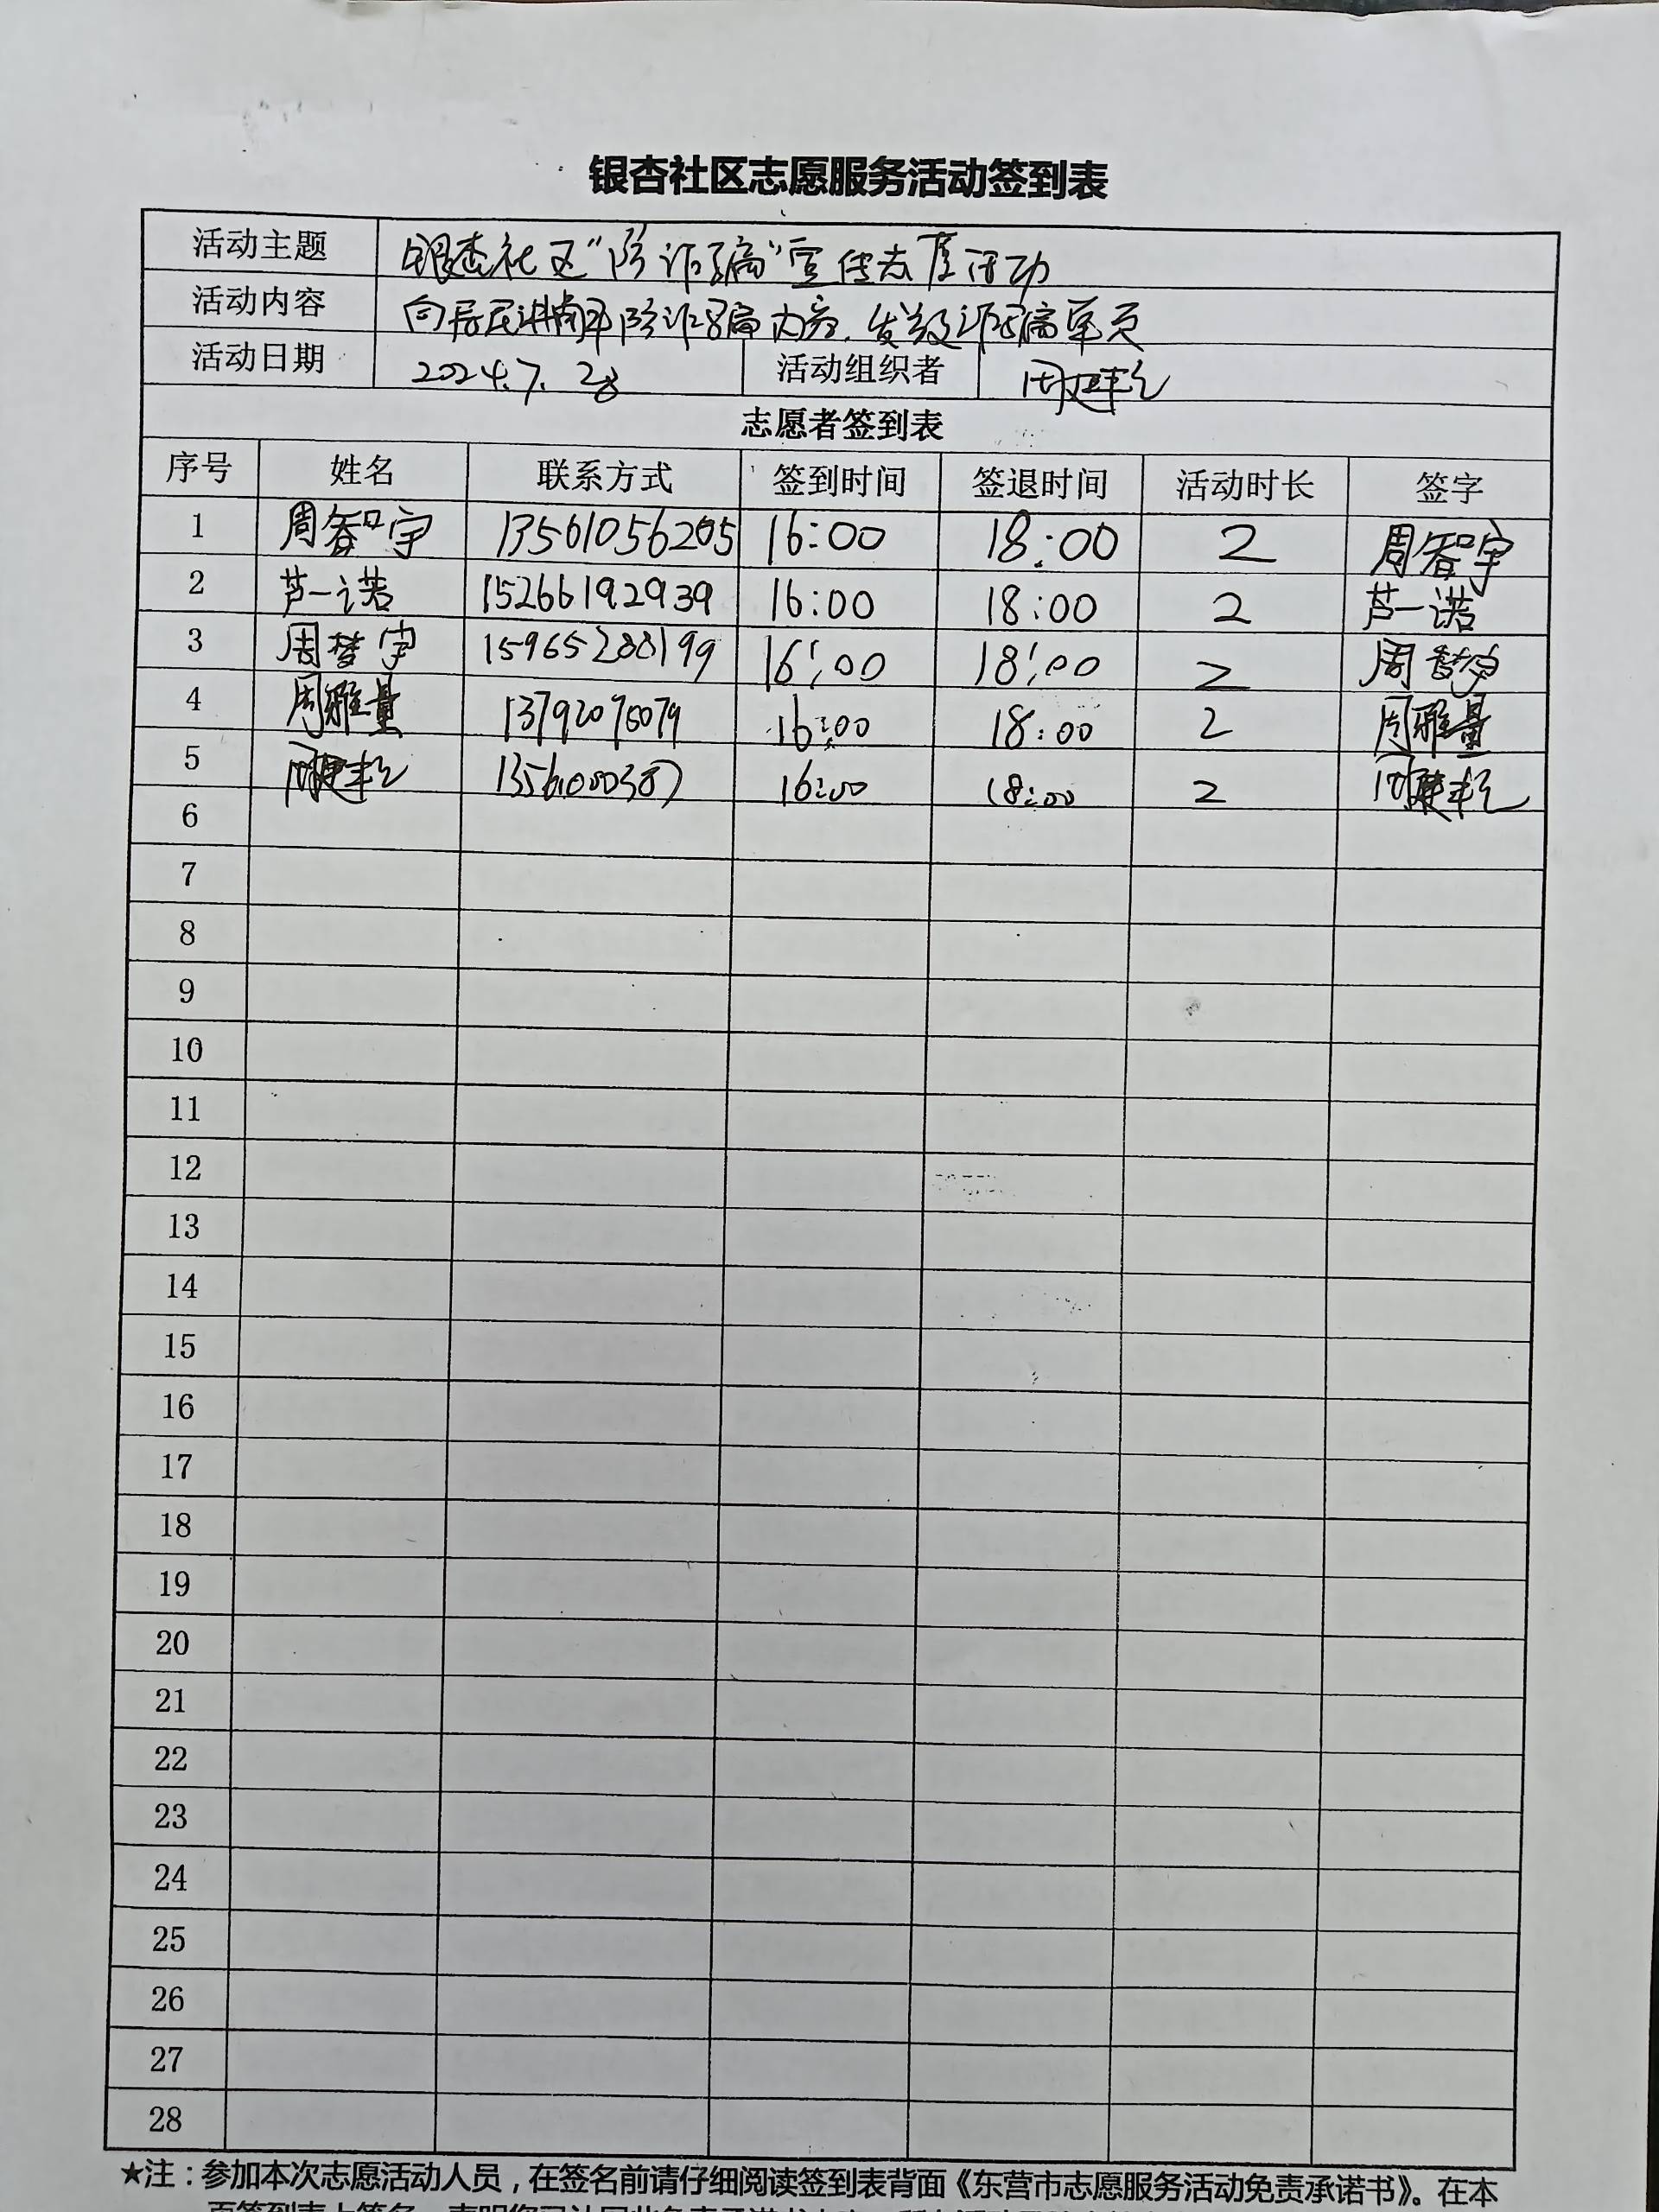 银杏社区志愿服务活动签到表
活动主题 银杏社区“防诈骗”宣传志愿活动
活动内容 向居民讲解防诈骗内容,发放诈骗单页
活动日期 2024.7.28 活动组织者 周建
志愿者签到表
序号 姓名 联系方式 签到时间 签退时间 活动时长 签字
1 周智宇 13561056205 16:00 18:00 2 周智宇
2 芦一诺 15266192939 16:00 18:00 2 芦一诺
3 周梦宇 15965288199 16:00 18:00 2 周梦宇
4 周雅量 13792076079 16:00 18:00 2 周雅量
5 周建 16:00 18:00 2 周建
6
7
8
9
10
11
12
13
14
15
16
17
18
19
20
21
22
23
24
25
26
27
28
★注:参加本次志愿活动人员,在签名前请仔细阅读签到表背面《东营市志愿服务活动免责承诺书》。在本